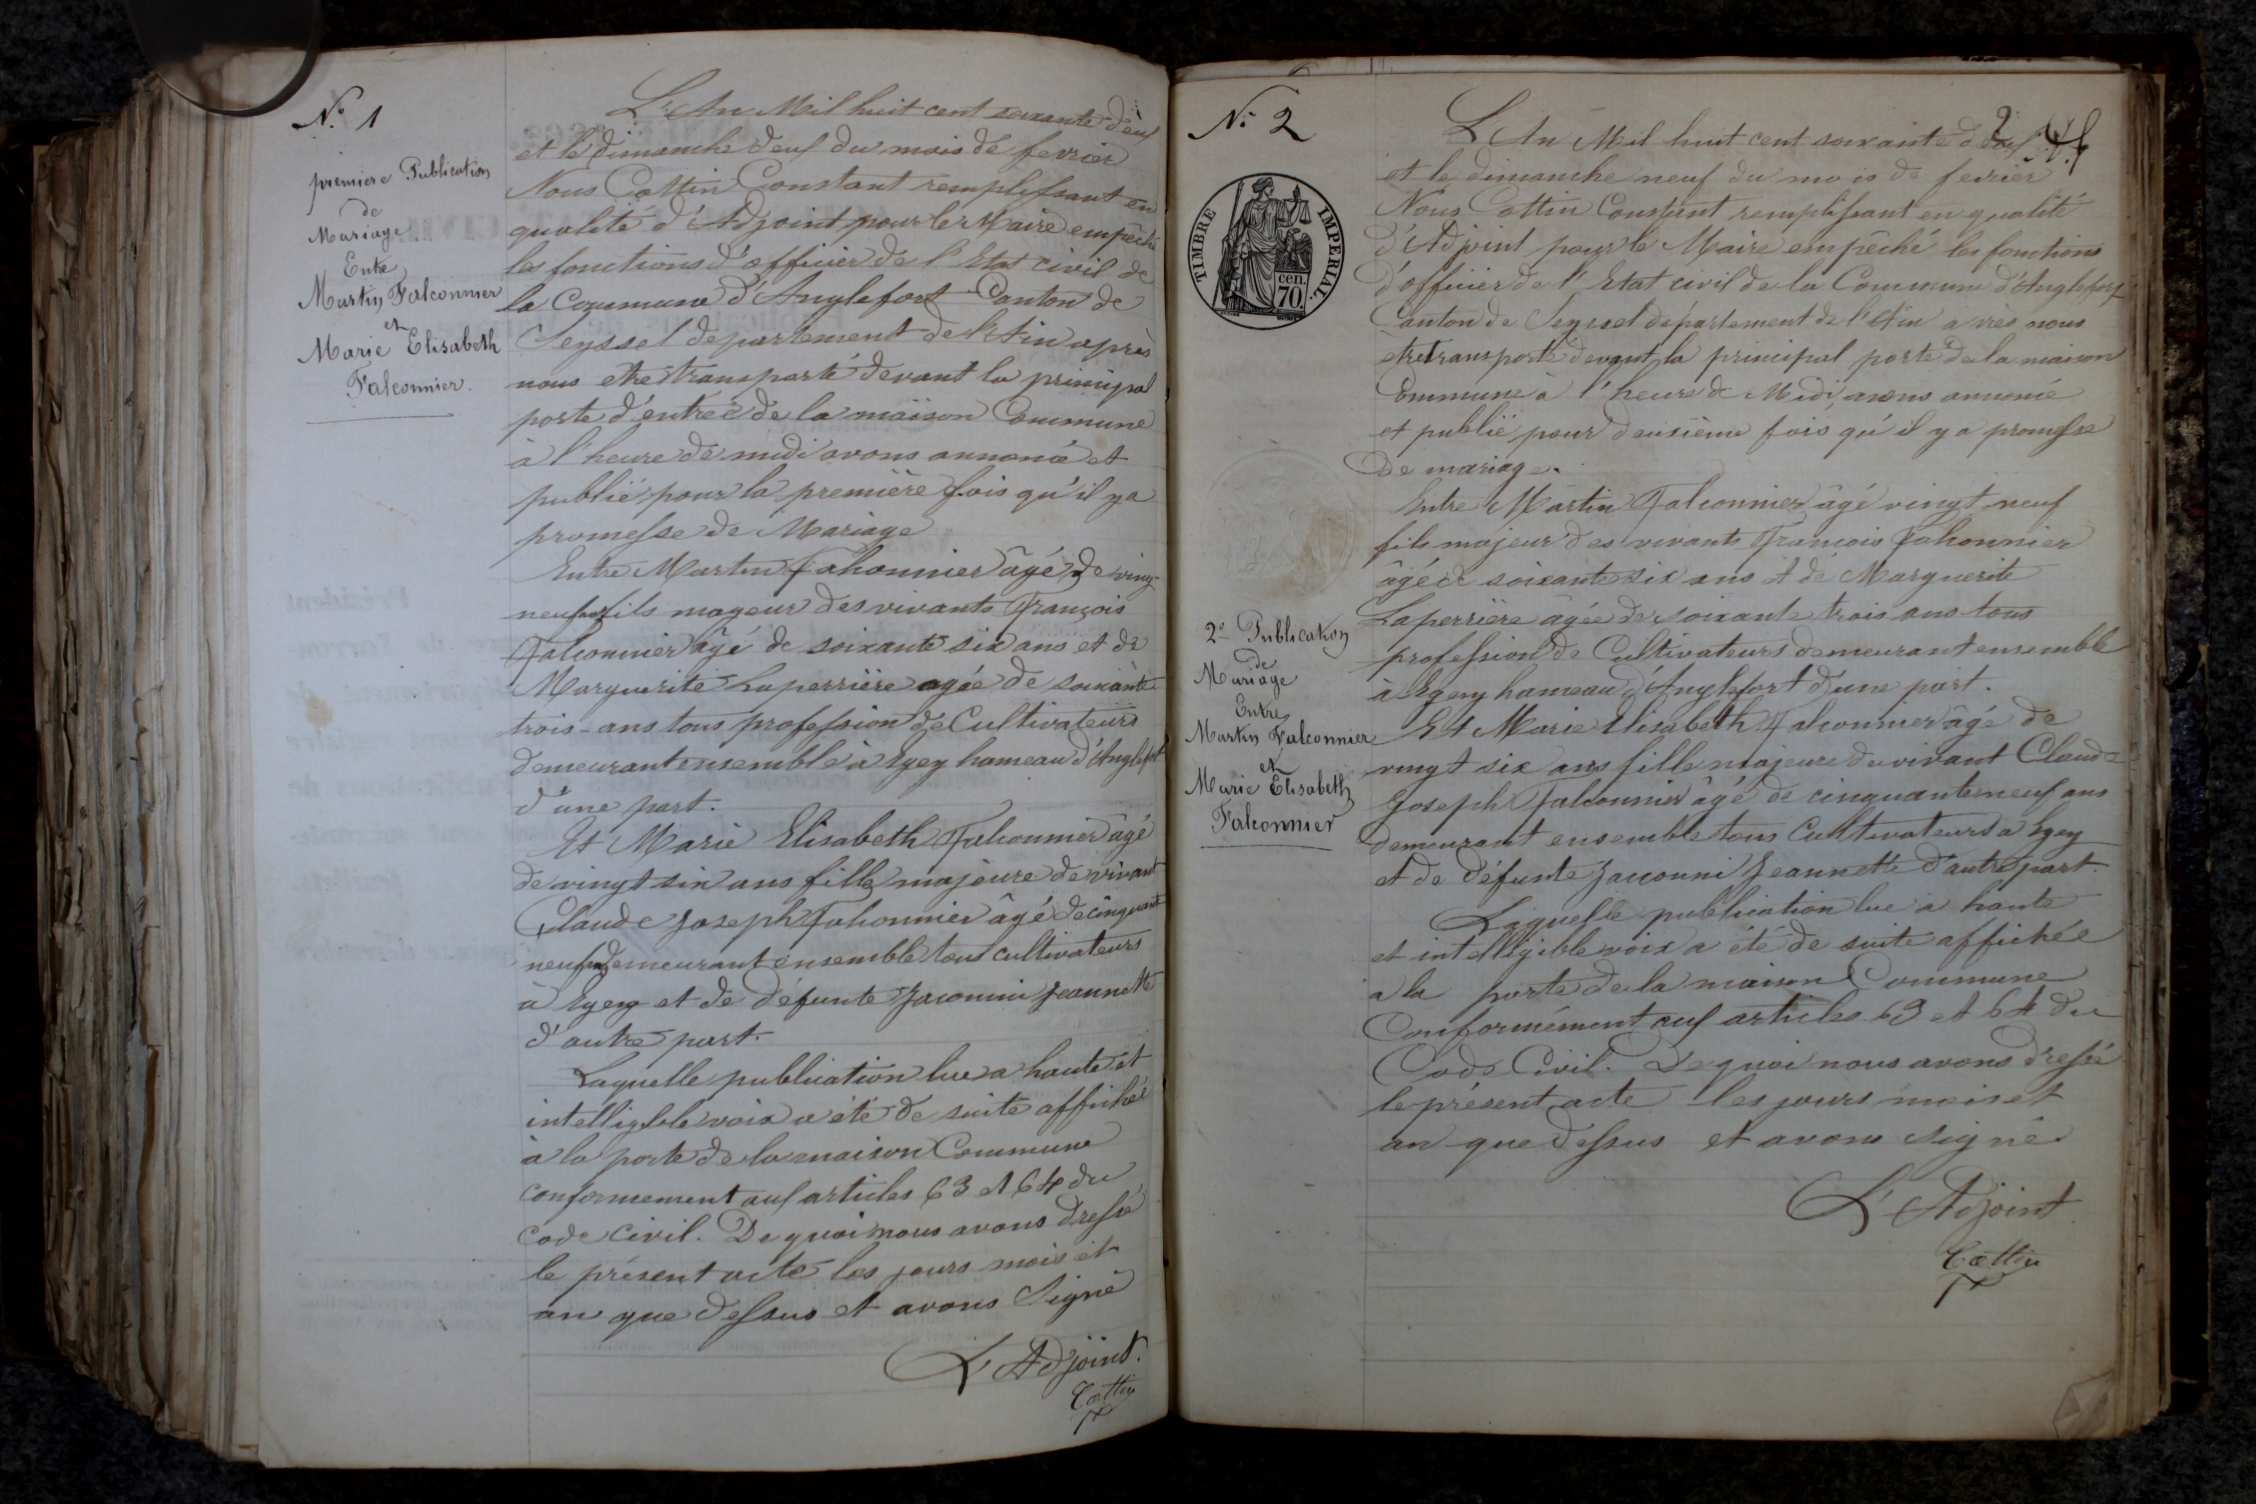 N° 1
premiere Publication
de
Mariage
Entre
Martin Falconnier
et
Marie Elisabeth
Falconnier.
L'An Mil huit cent soixante deux
et le dimanche deux du mois de fevrier
Nous Cottin Constant remplissant en
qualité d'Adjoint pour le Maire empêché
les fonctions d'officier de l'Etat civil de
la Commune d'Anglefort Canton de
Seyssel departement de l'Ain après
nous etre transporté devant la principal
porte d'entrée de la maison Commune
à l'heure de midi avons annoncé et
publié pour la première fois qu'il y a
promesse de Mariage
Entre Martin Falconnier âgé de vingt
neuf fils mageur des vivants François
Falconnier âgé de soixante six ans et de
Marguerite Laperrière agée de soixante
trois ans tous profession de Cultivateurs
demeurant ensemble à Eyey hameau d'Anglefort
d'une part.
Et Marie Elisabeth Falconnier âgé
de vingt six ans fille majeure de vivant
Claude Joseph Falconnier âgé de cinquante
neuf demeurant ensemble tous cultivateurs
à Eyey et de défunte Jaconni Jeannette
d'autre part.
Laquelle publication lue a haute et
intelligible voix a été de suite affichée
à la porte de la maison Commune
conformement aux articles 63 et 64 du
code civil. De quoi nous avons dressé
le présent acte les jours mois et
an que dessus et avons Signé
L'Adjoint.
Cottin
N° 2
2
TIMBRE IMPERIAL.
cen.
70.
2e Publication
de
Mariage
Entre
Martin Falconnier
et
Marie Elisabeth
Falconnier
L'An Mil huit cent soixante deux
et le dimanche neuf du mois de fevrier
Nous Cottin Constant remplissant en qualité
d'Adjoint pour le Maire empêché les fonctions
d'officier de l'Etat civil de la Commune d'Anglefort
Canton de Seyssel département de l'Ain après nous
etre transporté devant la principal porte de la maison
Commune à l'heure de Midi avons annoncé
et publié pour deuxième fois qu'il y a promesse
de mariage.
Entre Martin Falconnier âgé vingt neuf
fils majeur des vivants François Falconnier
âgé de soixante six ans et de Marguerite
Laperrière âgée de soixante trois ans tous
profession de Cultivateurs demeurant ensemble
à Eyey hameau d'Anglefort d'une part.
Et Marie Elisabeth Falconnier âgé de
vingt six ans fille majeure du vivant Claude
Joseph Falconnier âgé de cinquante neuf ans
demeurant ensemble tous Cultivateurs a Eyey
et de défunte Jaconni Jeannette d'autre part.
Laquelle publication lue a haute
et intelligible voix a été de suite affichée
a la porte de la maison Commune
Conformément aux articles 63 et 64 du
Code Civil. De quoi nous avons dressé
le présent acte les jours mois et
an que dessus et avons signé
L'Adjoint
Cottin